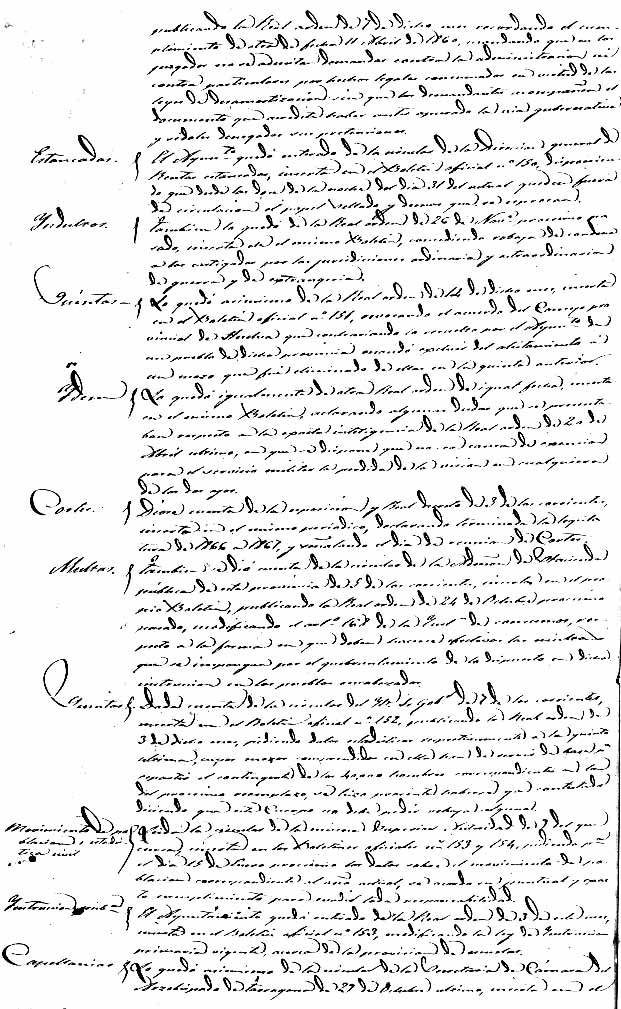 publicando la Real orden de 7 de dicho mes recordando el cum-
plimiento de otra de fecha 11 Abril de 1860, mandando que en los
juzgados no se admitan demandas contra la administracion ni
contra particulares por bienes legales en virtud de las
leyes de Desamortizacion sin que los demandantes acompañen el
documento que acredite haber antes apurado la via gubernativa
y serles denegadas sus pretensiones.
Estancadas. El Ayunt.º quedó enterado de la circular de la Direccion general de
Rentas estancadas, inserta en el Boletin oficial nº 150, disponien-
do que desde las doce de la noche del dia 31 del actual quede fuera
de circulacion el papel sellado y demas que se espresan.
Yndultos. Tambien lo quedó de la Real orden de 26 de Nov.e procsimo pa-
sado, inserta en el mismo Boletin, concediendo rebaja de condena
a los castigados por las jurisdicciones ordinaria y extraordinarias
de guerra y de extrangeria.
Quintas Lo quedó asimismo de la Real orden de 14 de dicho mes, inserta
en el Boletin oficial nº 151, revocando el acuerdo del Consejo pro-
vincial de Huelva que contrariando lo resuelto por el Ayunt.º de
un pueblo de dicha provincia mandó escluir del alistamiento á
un mozo que fué eliminado de ellas en la quinta anterior.
Ydem Lo quedó igualmente de otra Real orden de igual fecha, inserta
en el mismo Boletin, aclarando algunas dudas que se presenta-
ban respecto a la exacta inteligencia de la Real orden de 20 de
Abril ultimo, en que se dispone que no es causa de esencion
para el servicio militar la perdida de la vision en cualquiera
de los dos ojos.
Cortes. Diose cuenta de la esposicion y Real decreto de 3 de los corrientes,
inserto en el mismo periodico, declarando terminada la legisla-
tura de 1866 a 1867, y señalando el dia de reunion de Cortes.
Multas. Tambien se dió cuenta de la circular de la Admon de Hacienda
pública de esta provincia de 5 de los corrientes, inserta en el pro-
pio Boletin, publicando la Real orden de 24 de Octubre procsimo
pasado, modificando el art.º de la Inst.n de consumos, res-
pecto a la forma en que deban hacerse efectivas las multas
que se impongan por el quebrantamiento de lo dispuesto en dicha
instruccion en los pueblos encabezados.
Quintas Dada cuenta de la circular del Yll.e Sr. Gob.r de 7 de los corrientes,
inserta en el Boletin oficial nº 152, publicando la Real orden de
3 de dicho mes, pidiendo datos estadisticos respectivamente a la quinta
ultima, cuyos mozos comprendidos en ella han de servir de base p.ª
repartir el contingente de los 40,000 hombres correspondientes en
el procsimo reemplazo, se hizo presente haberse ya contestado
diciendo que este Cuerpo no debe pedir rebaja alguna.
Movimiento de po- Leida la circular de la misma Superior Autoridad de 9 del que
blacion, estadis- cursa, inserta en los Boletines oficiales nº 153 y 154, pidiendo p.ª
tica civil el dia 15 de Enero procsimo los datos sobre el movimiento de po-
blacion correspondiente al año actual, se acordó su puntual y exac-
to cumplimiento para eludir toda responsabilidad.
Ynstruccion pub.ca El Ayuntamiento quedó enterado de la Real orden de 3 de este mes,
inserta en el Boletin oficial nº 153, modificando la ley de Ynstruccion
primaria vigente, acerca de la provision de escuelas.
Capellanias Lo quedó asimismo de la circular de la Secretaria de Cámara del
Arzobispado de Tarragona de 27 de Octubre ultimo, inserta en el